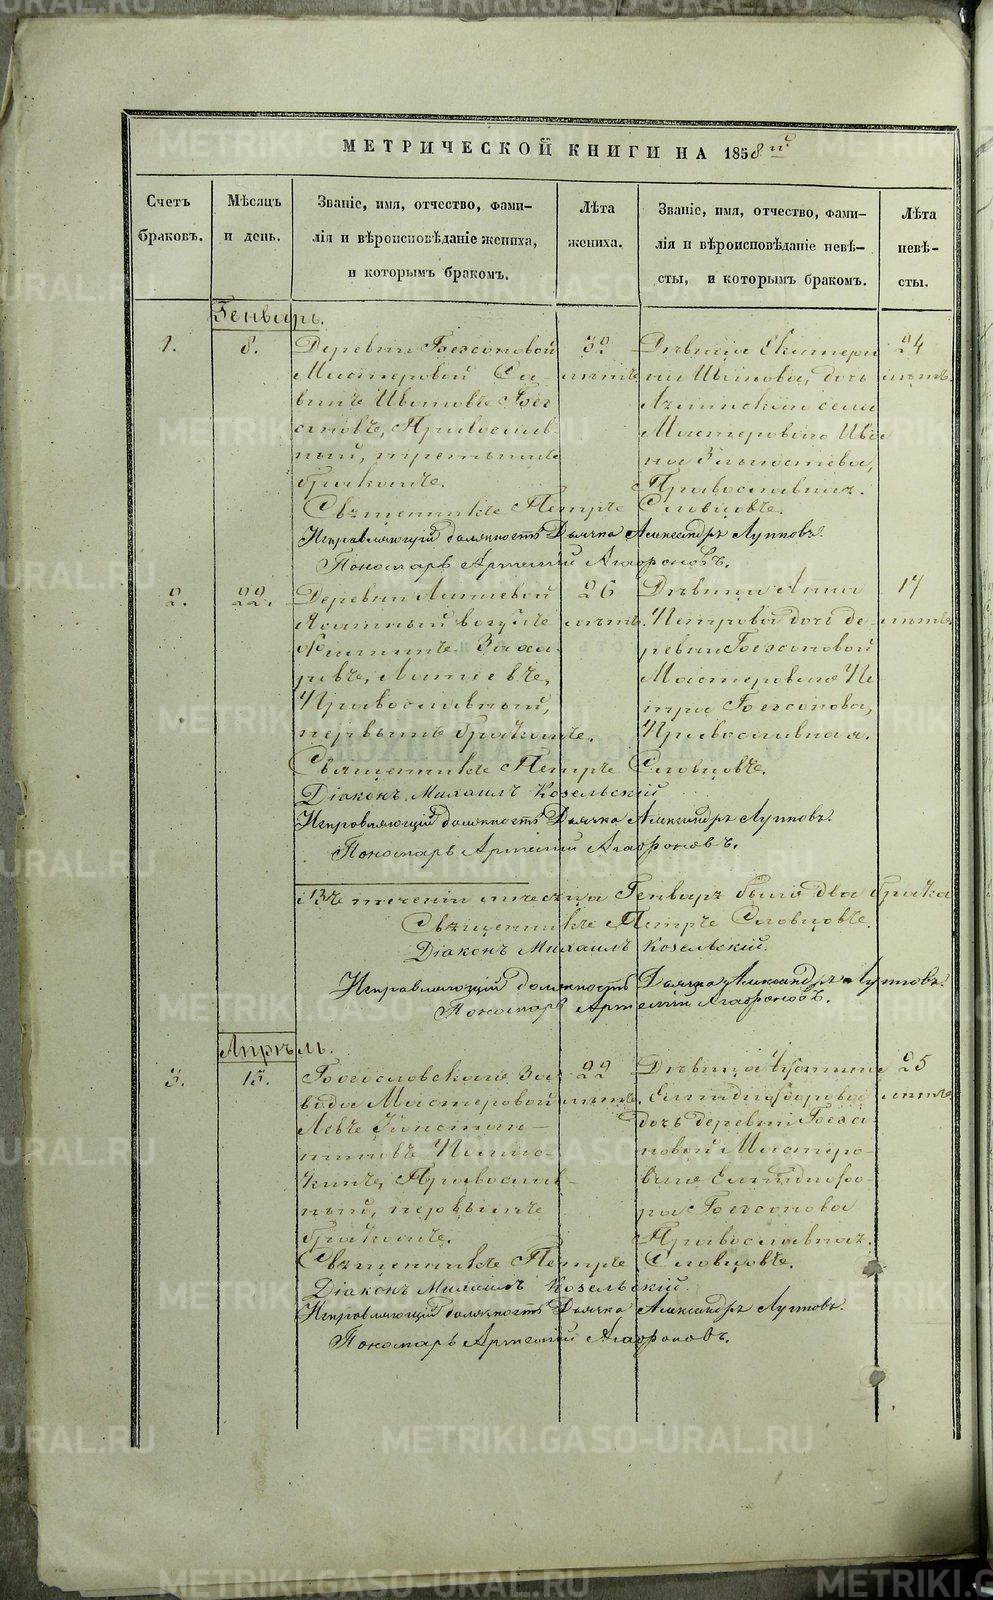 МЕТРИЧЕСКОЙ КНИГИ НА 1858й
Счетъ браковъ.
Мѣсяцъ и день.
Званіе, имя, отчество, фами-
лія и вѣроисповѣданіе жениха,
и которымъ бракомъ.
Лѣта жениха.
Званіе, имя, отчество, фами-
лія и вѣроисповѣданіе невѣ-
сты, и которымъ бракомъ.
Лѣта невѣ-
сты.
Генварь.
1.
8.
Деревни
Мастеровой Са-
 винъ Ивановъ
Православ-
ный, третьимъ
бракомъ.
30
лѣтъ
Дѣвица Екатери
на Иванова, дочь
села
Мастероваго Ива
на
Православная.
24
лѣтъ.
Священникъ Петръ Словцовъ.
Исправляющій должность Дьячка Александръ Лупповъ.
Пономарь Артемій Агафоновъ.
2.
22.
Деревни
Филиппъ Заха-
ровъ,
Православный,
первымъ бракомъ.
26
лѣтъ.
Дѣвица Анна
Петрова дочь де-
ревни
Мастероваго Пе
тра
Православная.
17
лѣтъ
Священникъ Петръ Словцовъ.
Діаконъ Михаилъ Козельскій
Исправляющій должность Дьячка Александръ Лупповъ.
Пономарь Артемій Агафоновъ.
Въ теченіи мѣсяца Генваря было два брака
Священникъ Петръ Словцовъ.
Діаконъ Михаилъ Козельскій.
Исправляющій должность Дьячка Александръ Лупповъ.
Пономарь Артемій Агафоновъ.
Апрѣль.
3.
15.
Богословскаго За-
вода Мастеровой
Левъ Констан-
тиновъ
Православ-
ный, первымъ
бракомъ.
22
лѣтъ.
Дѣвица
Елпидифорова
дочь деревни
Мастеро-
ваго Елпидифо-
ра
Православная.
25
лѣтъ
Священникъ Петръ Словцовъ.
Діаконъ Михаилъ Козельскій.
Исправляющій должность Дьячка Александръ Лупповъ.
Пономарь Артемій Агафоновъ.
METRIKI.GASO-URAL.RU